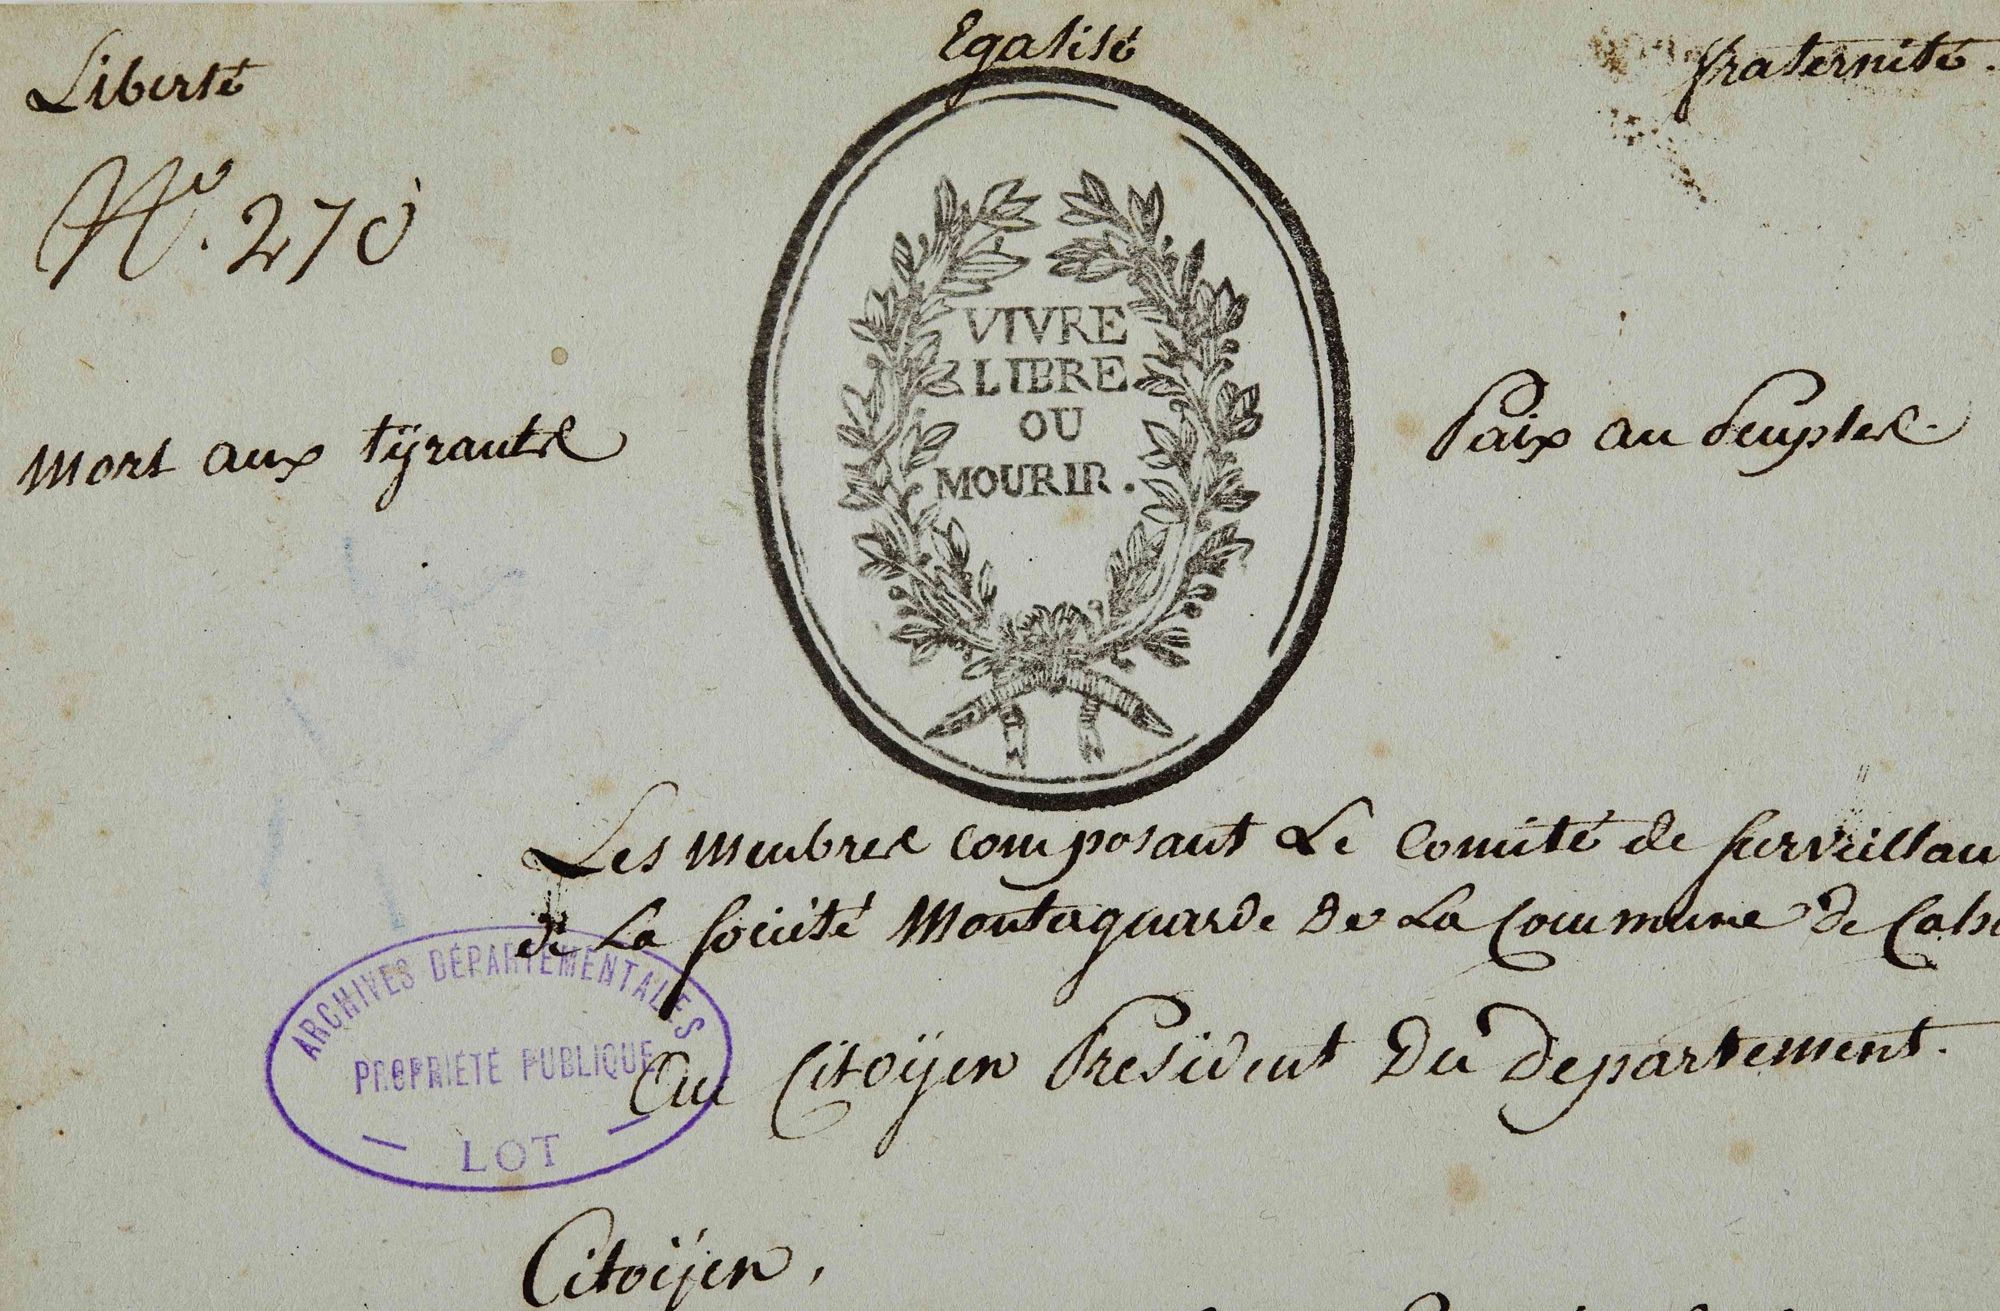 Liberté Egalité fraternité.
N.º 270
VIVRE
LIBRE
OU
MOURIR.
Mort aux tÿrants Paix au Peuples.
Les Membres composant Le Comité de surveillan
de La société Montagnarde de La Commune de Caho
ARCHIVES DÉPARTEMENTALES
PROPRIÉTÉ PUBLIQUE
LOT
Au Citoÿen President Du Departement.
Citoÿen,